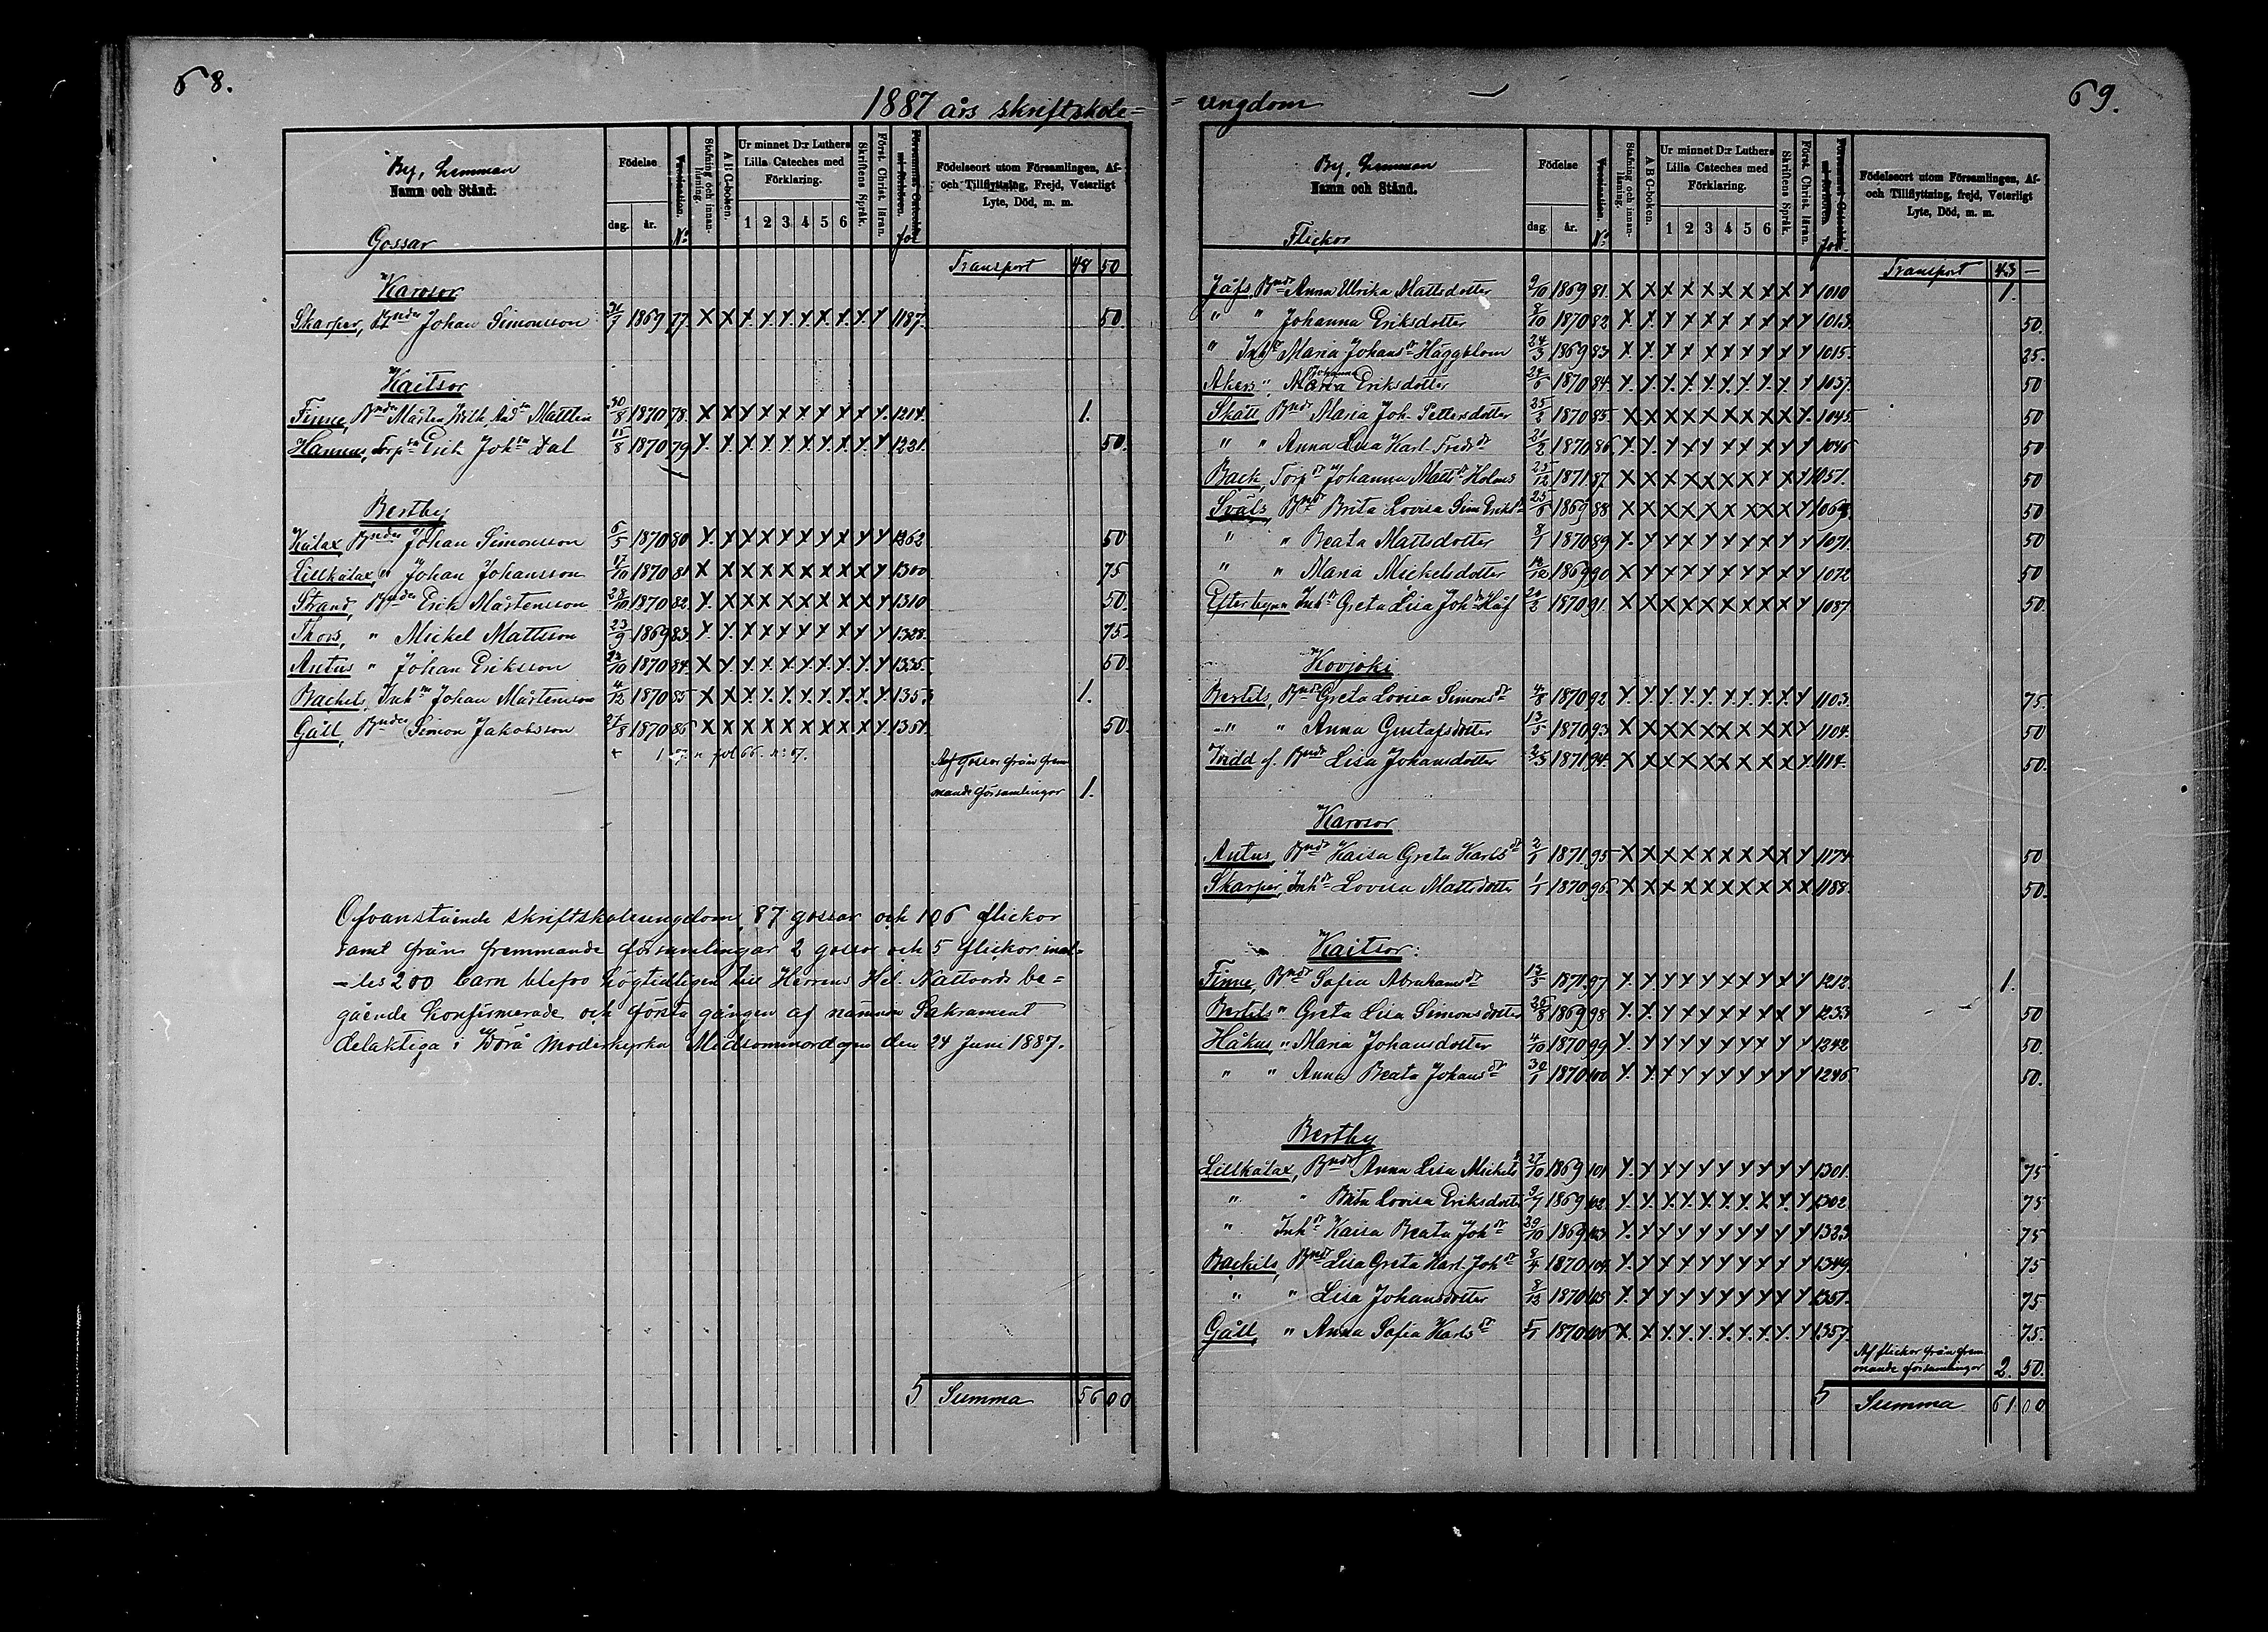 68.
1887 års skriftskole-
By, Hemman
Namn och Stånd.
Gossar
Födelse
dag. år.
Vaccination.
No
Stafning och innanläsning.
A B C-boken.
Ur minnet D:r Luthers
Lilla Cateches med
Förklaring.
1 2 3 4 5 6
Skriftens Språk.
Först. Christ. läran.
fol
Födelseort utom Församlingen, Af-
och Tillflyttning, Frejd, Veterligt
Lyte, Död, m. m.
Transport 48 50
Karvsor
Skarper, Bnde Johan Simonsson 1869 77 X X X X X X X X X X 1187. 50.
Kaitsor
Finne, Bnde Mårten Wilh. Mattson 30/8 1870 78. X X X X X X X X X X 1214. 1.
Hannus, Torp Erik Johsn Dal 15/8 1870 79 X X X X X X X X X X 1231. 50.
Bertby
Kålax Bnde Johan Simonsson 6/5 1870 80 X X X X X X X X X X 1262 50
Lillkålax, " Johan Johansson 17/10 1870 81 X X X X X X X X X X 1300 75
Strand, Bnde Erik Mårtensson 28/10 1870 82. X X X X X X X X X X 1310 50.
Thors, " Mickel Mattsson 23/9 1869 83 X X X X X X X X X X 1328. 75.
Antus " Johan Eriksson 1870 84. X X X X X X X X X X 1335. 50.
Backels, Inh Johan Mårtensson 4/12 1870 85 X X X X X X X X X X 1353 1.
Gåll, Bnde Simon Jakobsson 27/8 1870 86 X X X X X X X X X X 1351. 50.
fol 66. n:o 67.
Af Gossar från frem
mande församlingar 1.
Ofvanstående skriftskoleungdom, 87 gossar och 106 flickor
samt från fremmande församlingar 2 gossar och 5 flickor inal-
-les 200 barn blefvo högtidligen till Herrens Hel. Nattvards be=
gående konfirmerade och första gången af nämnda Sakrament
delaktiga i Vörå moderkyrka Midsommardagen den 24 Juni 1887.
5 Summa 56 00
69.
-ungdom
By, Hemman
Namn och Stånd.
Flickor
Födelse
dag. år.
Vaccination.
No
Stafning och innanläsning.
A B C-boken.
Ur minnet D:r Luthers
Lilla Cateches med
Förklaring.
1 2 3 4 5 6
Skriftens Språk.
Först. Christ. läran.
fol.
Födelseort utom Församlingen, Af-
och Tillflyttning, frejd, Veterligt
Lyte, Död, m. m.
Transport 43 —
Jåfs, Bndr Anna Ulrika Mattsdotter 9/10 1869 81. X X X X X X X X X X 1010 1.
" " Johanna Eriksdotter 8/10 1870 82. X X X X X X X X X X 1013. 50.
" Inhdr Maria Johansdr Häggblom 24/3 1869 83 X X X X X X X X X X 1015. 25.
Akers " Maria Johanna Eriksdotter 24/6 1870 84. X X X X X X X X X X 1037. 50
Skått Bndr Maria Joh. Pettersdotter 25/2 1870 85 X X X X X X X X X X 1045. 50
" " Anna Lisa Karl-Fredsdr 21/2 1870 86 X X X X X X X X X X 1046 50
Back, Torpdr Johanna Mattsdr Holms 25/12 1871. 87 X X X X X X X X X X 1051. 50
Svåls, Bndr Brita Lovisa Sim. Eriksdr 25/6 1869 88 X X X X X X X X X X 1069. 50
" " Beata Mattsdotter 8/1 1870 89 X X X X X X X X X X 1071. 50
" " Maria Mickelsdotter 1869 90 X X X X X X X X X X 1072 50
Efterbyn Inhdr Greta Lisa Johdr Håf 1870 91. X X X X X X X X X X 1087. 50.
Kovjoki
Bertils, Bndr Greta Lovisa Simonsdr 4/8 1870 92 X X X X X X X X X X 1103. 75.
" " Anna Gustafsdotter 13/5 1870 93 X X X X X X X X X X 1104. 50
Widd Bndr Lisa Johansdotter 1871 94. X X X X X X X X X X 1114. 50.
Karvsor
Antus, Bndr Kaisa Greta Karlsdr 2/1 1871. 95 X X X X X X X X X X 1174 50
Skarper, Inhdr Lovisa Mattsdotter 1/1 1870 96. X X X X X X X X X X 1188. 50.
Kaitsor:
Finne, Bndr Sofia Abrahamsdr 13/5 1871. 97 X X X X X X X X X X 1212. 1.
Bertils " Greta Lisa Simonsdotter 26/8 1869 98. X X X X X X X X X X 1233 50
Håkus, " Maria Johansdotter 4/10 1870 99 X X X X X X X X X X 1242 50.
" " Anna Beata Johansdr 30/1 1870 100 X X X X X X X X X X 1246 50.
Bertby
Lillkålax, Bndr Anna Lisa Mickelsdr 27/10 1869 101 X X X X X X X X X X 1301. 75
" " Brita Lovisa Eriksdotter 1869 102. X X X X X X X X X X 1302 75
" Inhdr Kaisa Beata Johdr 29/10 1869 103 X X X X X X X X X X 1323 75
Backels, Bndr Lisa Greta Karl Johdr 8/4 1870 104. X X X X X X X X X X 1349. 75
" " Lisa Johansdotter 8/12 1870 105 X X X X X X X X X X 1351. 75
Gåll, " Anna Sofia Karlsdr 5/1 1870 106 X X X X X X X X X X 1357. 75.
Af flickor från frem
mande församlingar 2. 50.
5 Summa 61. 00